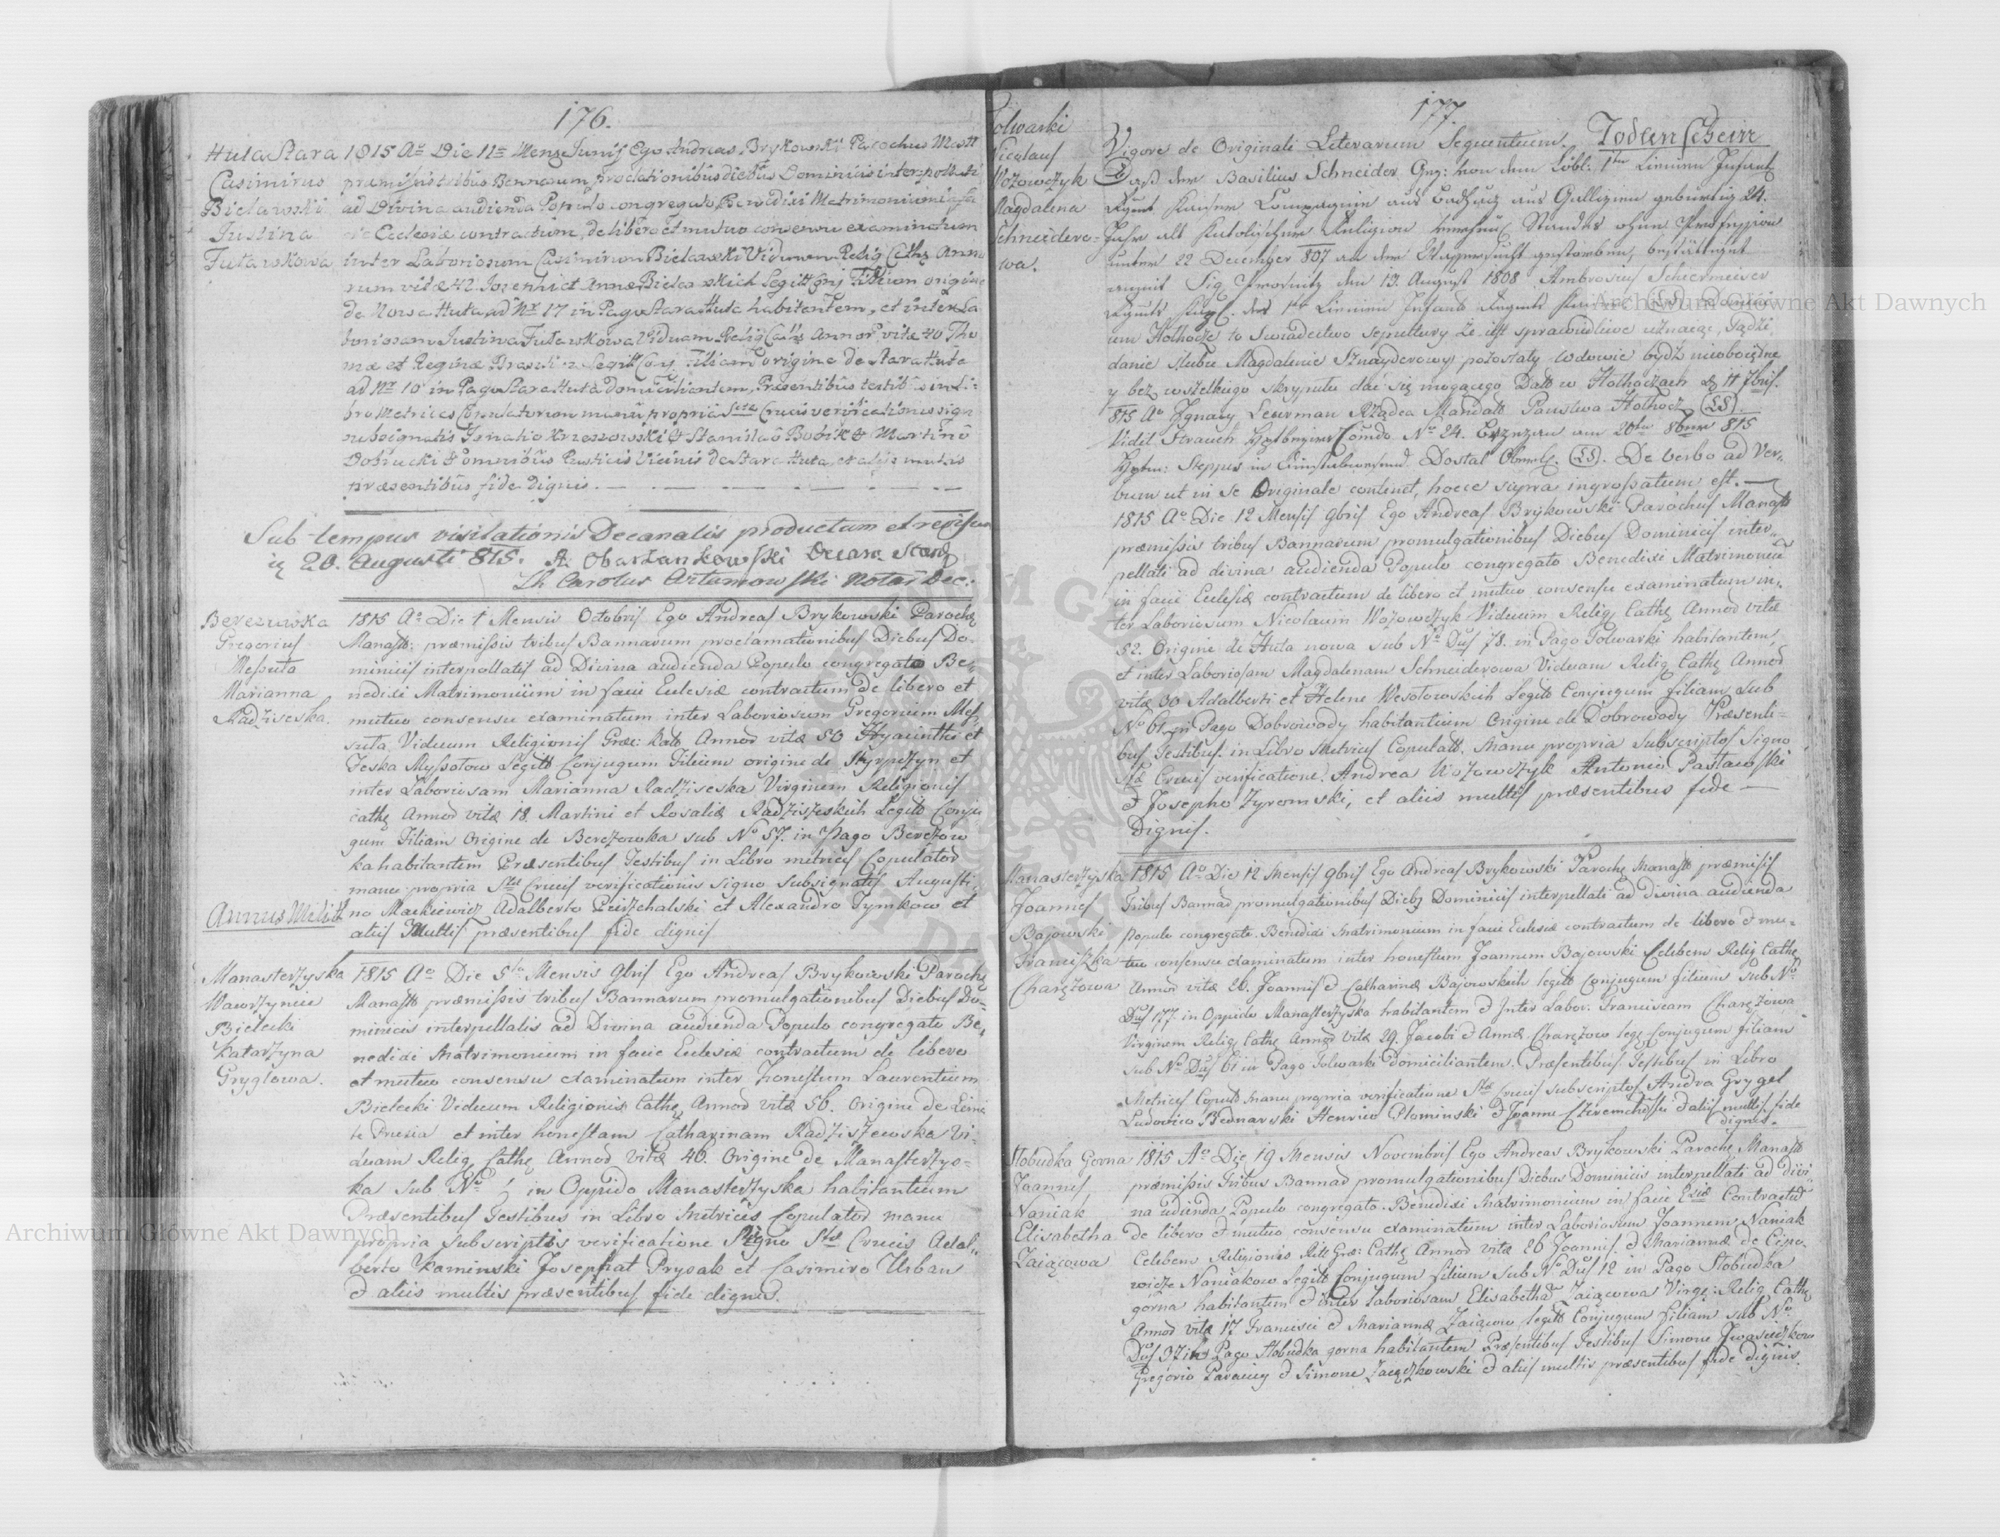 176.
Huta Stara
Casimirus
Bielawski
Justina
Futarskowa
1815 Ao Die 11a Mens Junij Ego Andreas Brykowski Parochus Mastt
præmissis tribus Bannorum proclationibus diebus Dominicis interpollati
ad Divina audienda Populo congregato Benedixi Matrimonium in fa
cie Ecclesiæ contractum, de libero et mutuo consensu examinatum
inter Laboriosum Casimirum Bielawski Viduum Relig Cath Anno
rum vitæ 42 et Annæ Bielawskich Legitt Conj Filium origine
de Nowa Huta ad Nr 17 in Pago Stara Huta habitentem, et inter La
boriosam Justina Futarskowa Viduam Relig Cath Annor vitæ 40 Tho
mæ et Reginæ Legitt Conj Filiam origine de Stara Huta
ad Nr 10 in Pago Stara Huta domicitiantem, Præsentibus testibus in Li-
bro Metrices Copulatorum manu propria Stæ Crucis verificationis sign
subsignatis Ignatio Krzessowski & Stanislao Bobik & Martino
Dobrucki & omnibus Rusticis Vicinis de Stara Huta, et alijs multis
præsentibus fide dignis. — — — — —
Sub tempus visitationis Decanalis productum et revisum
20. Augusti 815.
Th. Carolus Artumowski Notar Dec:
Berezowka
Gregorius
Messuta
Marianna
Radziseska.
1815 Ao Die 1 Mensis Octobris Ego Andreas Brykowski Parochs
Manastt: præmissis tribus Bannarum proclamationibus Diebus Do-
minicis interpollatis ad Divina audienda Populo congregato Be-
nedixi Matrimonium in facie Eclesiæ contractum de libero et
mutuo consensu examinatum inter Laboriosum Gregorium Mes-
suta, Viduum Religionis Græc: Catt Annor vitæ 50 Hyacinthi et
Teska Myssotow Legitt Conjugum Filium origine de Skyrpczyn et
inter Laboriosam Marianna Radziseska Virginem Religionis
cathe Annor vitæ 18. Martini et Rosaliæ Radziszeskich Legitt Conju-
gum Filiam origine de Berezowka sub No 57. in Pago Berezow
ka habitantem Præsentibus Testibus in Libro metrices Copulator
manu propria Stæ Crucis verificationis signo Subsignatis Augusti-
no Mackiewicz Adalberto Peirzchalski et Alexandro Tymkow et
aliis Multis præsentibus fide dignis
Annus Milit
Manasterzyska
Wawrzyniec
Bielecki
Katarzyna
Gryglowa.
1815 Ao Die 5ta Mensis 9bris Ego Andreas Brykowski Parochs
Manastt præmissis tribus Bannarum promulgationibus Diebus Do-
minicis interpellatis ad Divina audienda Populo congregato Be-
nedixi Matrimonium in facie Eclesiæ contractum de libero
et mutuo consensu examinatum inter Honestum Laurentium
Bielecki Viduum Religionis Cathe Annor vitæ 56. Origine de
Prusia et inter honestam Catharinam Radziszewska Vi-
duam Relig Cathe Annor vitæ 40. Origine de Manasterzys-
ka sub No 1 in Oppido Manasterzyska habitantium
Præsentibus Testibus in Libro Metrices Copulator manu
propria subscriptis verificatione Signo Stæ Crucis Adal-
berto Kaminski Josephat Prysak et Casimiro Urban
& aliis multis præsentibus fide dignis.
177.
Folwarki
Nicolaus
Wozowczyk
Magdalena
Schneidero-
wa.
Vigore de Originali Literarum Sequentium. Todten Schein
Daß der Basilius Schneider Gez: von dem Löbl: 1ten Linien Infant
Regmt Kaiser Compagnie aus aus Gallizien gebürtig 24.
Jahr alt Katolischer Religion Standes ohne Profession
unterm 22 December 807 an der gestorben, bestättiget
den 13. August 1808. Ambrosius
Hothocze to Swiadectwo Sepultury że jest sprawiedliwe uznaiąc, Sądzi,
danie Slubu Magdalenie Sznayderowy pozostaty wdowie bydź nieobciążne
y bez wszelkiego skryputu dać się mogącego Dato w Hothoczach d 11 7bris.
815 Ao Jgnacy Leurman Rządca Mandatt Panstwa Hothocz (LS)
Vidit Strauch No 24. Brzezan am 20ten 8ber 815
(LS). De verbo ad Ver-
bum ut in se Originale continet, hocce supra ingrossatum est. —
1815 Ao Die 12 Mensis 9bris Ego Andreas Brykowski Parochus Manastt
præmissis tribus Bannarum promulgationibus Diebus Dominicis inter-
pellati ad divina audienda Populo congregato Benedixi Matrimonium
in facie Eclesiæ contractum de libero et mutuo consensu examinatum in-
ter Laboriosum Nicolaum Wozowczyk Viduum Relig Cathe Annor vitæ
52. Origine de Huta nowa sub No Dus 78. in Pago Folwarki habitantem,
et inter Laboriosam Magdalenam Schneiderowa Viduam Relig Cathe Annor
vitæ 30 Adalberti et Helene Wesotowskich Legitt Conjugum filiam sub
No 61 in Pago Dobrowody habitantium Origine de Dobrowody Præsenti-
bus Testibus in Libro Metrices Copulatt. Manu propria subscriptos Signo
Stæ Crucis verificatione. Andrea Wozowczyk Antonio Pastawski
& Josepho Zyromski, et aliis multis præsentibus fide —
Dignis.
Manasterzyska
Joannes
Bajowski
Franciszka
Charęzowa
1815 Ao Die 12 Mensis 9bris Ego Andreas Brykowski Parochs Manastt præmissis
Tribus Bannar promulgationibus Diebs Dominicis interpellati ad divina audienda
Populo congregato Benedixi Matrimonium in facie Eclesiæ contractum de libero & mu-
tuo consensu examinatum inter honestum Joannem Bajowski Celebem Relig Cathe
Annor vitæ 26. Joannis & Catharinæ Bajowskich legitt Conjugum filium sub No
Dus 177 in Oppido Manasterzyska habitantem & Inter Labor. Franciscam Charęzowa
Virginem Relig Cathe Annor vitæ 29. Jacobi & Annæ Charęzow leg. Conjugum filiam
sub No Dus 61 in Pago Folwarki domiciliantem. Præsentibus Testibus in Libro
Metrices Coputt Manu propria verificatione Stæ Crucis subscriptos Andrea Grygel
Ludovico Bednarski Henrico Plominski & Joanne & aliis multis fide
dignis.
Slobudka Gorna
Joannis
Naniak
Elisabetha
Zaiącowa
1815 Ao Die 19 Mensis Novembris Ego Andreas Brykowski Parochs Manastt
præmissis Tribus Bannar promulgationibus Diebus Dominicis interpellati ad divi-
na audienda Populo congregato Benedixi Matrimonium in facie Eclæ Contractum
de libero et mutuo consensu examinatum inter Laboriosum Joannem Naniak
Celebem Religionis Ritt Græ: Cathe Annor vitæ 26 Joannis & Mariannæ de
Naniakow Legitt Conjugum filium sub No Dus 12 in Pago Slobudka
gorna habitantem & inter Laboriosam Elisabetha Zaiącowa Virg: Relig Cathe
Annor vitæ 17 Francisci & Mariannæ Zaiącow legitt Conjugum Filiam sub No
Dus 37 in Pago Slobudka gorna habitantem Præsentibus Testibus Simone Iwasieczkow
Gregorio Paraniy & Simone Zaczkowski & aliis multis præsentibus fide dignis.
Archiwum Główne Akt Dawnych
Archiwum Główne Akt Dawnych